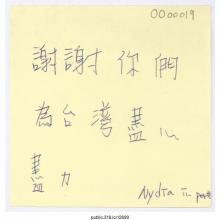 0000019
謝謝你們
為台灣盡心
盡力
Nydia
public.318.io/12699